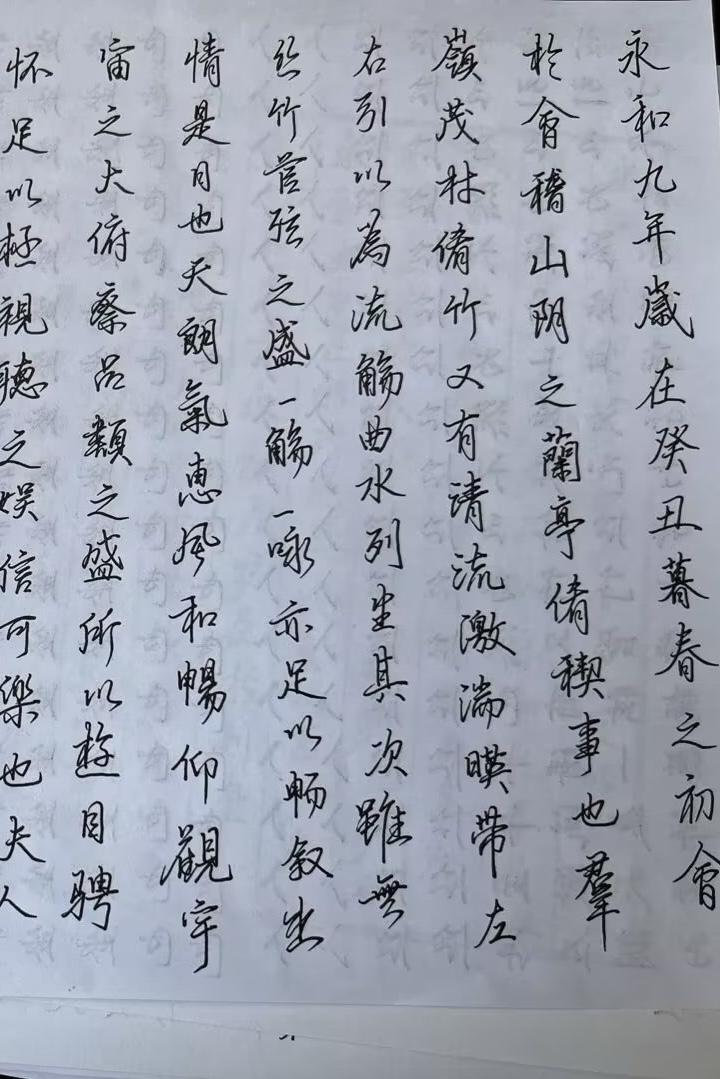 永和九年歲在癸丑暮春之初會
於會稽山阴之蘭亭脩稧事也羣
嶺茂林脩竹又有请流激湍暎带左
右引以為流觴曲水列坐其次雖無
丝竹管弦之盛一觴一咏亦足以畅叙幽
情是日也天朗氣惠风和暢仰觀宇
宙之大俯察品類之盛所以遊目骋
怀足以極視聽之娱信可樂也夫人